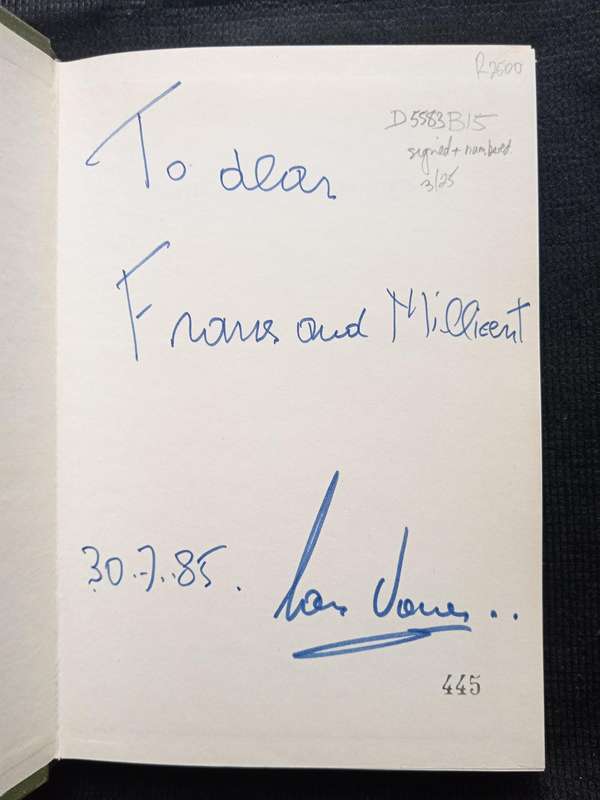 R2500
D5583B15
signed + numbered
3/25
To dear
Frans and Millicent
30.7.85.
445